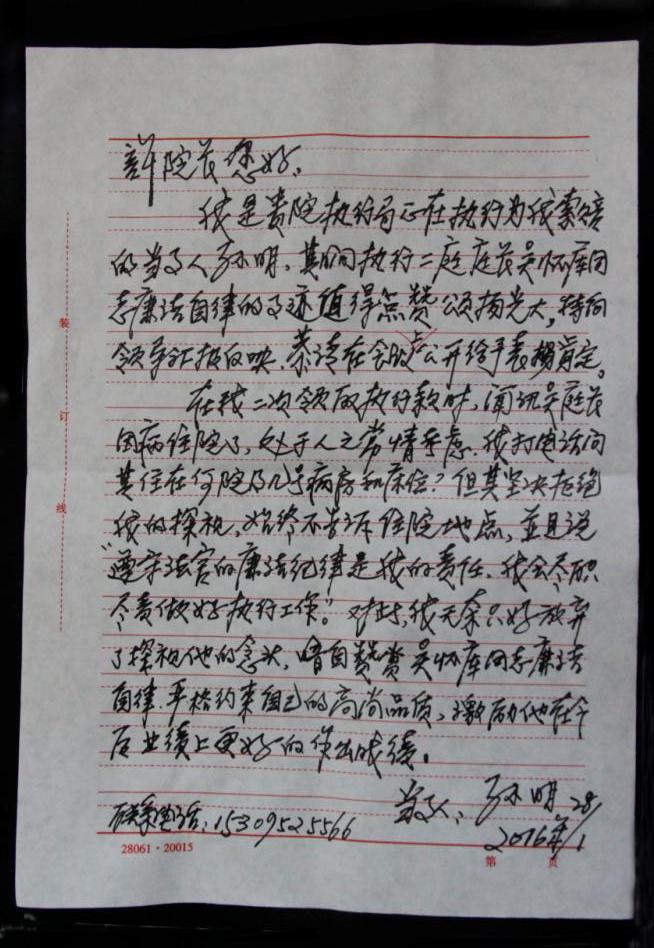 许院长您好。
我是贵院执行局正在执行为我索赔
的当事人孙明。其间执行二庭庭长吴怀库同
志廉洁自律的事迹值得点赞颂扬光大。特向
领导汇报反映，恭请在会时公开给予表扬肯定。
在我二次领取执行款时，闻讯吴庭长
因病住院了，处于人之常情考虑。我打电话问
其住在何院及几号病房和床位？但其坚决拒绝
我的探视，始终不告诉住院地点，並且说
“遵守法官的廉洁纪律是我的责任，我会尽职
尽责做好执行工作”。对此，我无奈只好放弃
了探视他的念头，暗自赞赏吴怀库同志廉洁
自律，严格约束自己的高尚品质，激励他在今
后业绩上更好的作出成绩。
当事人：孙明 28/
联系电话：15309525566
2016年/1
28061·20015
第 页
装
订
线